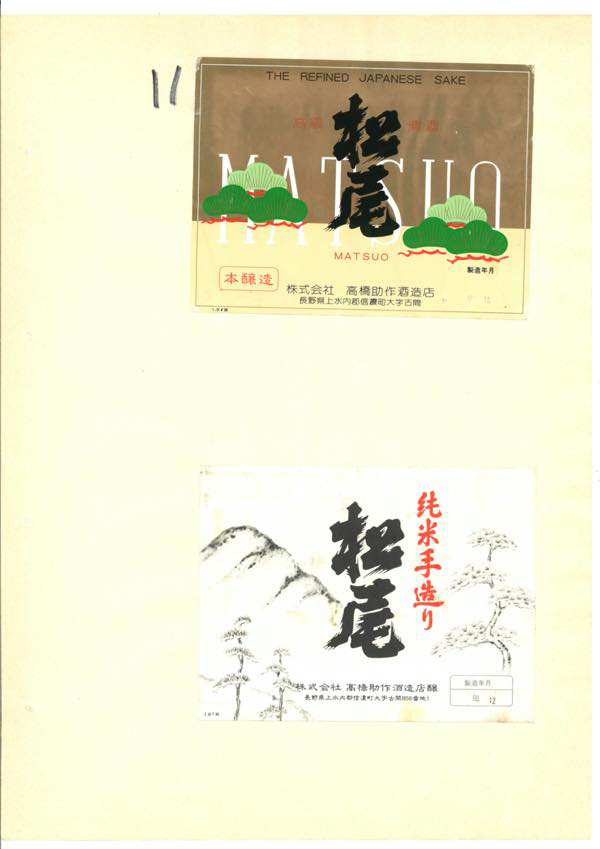 11
THE REFINED JAPANESE SAKE
松尾
清酒
MATSUO
MATSUO
製造年月
本醸造
株式会社 高橋助作酒造店
長野県上水内郡信濃町大字古間
12
純米手造り
松尾
株式会社 高橋助作酒造店醸
長野県上水内郡信濃町大字古間856番地1
製造年月
12